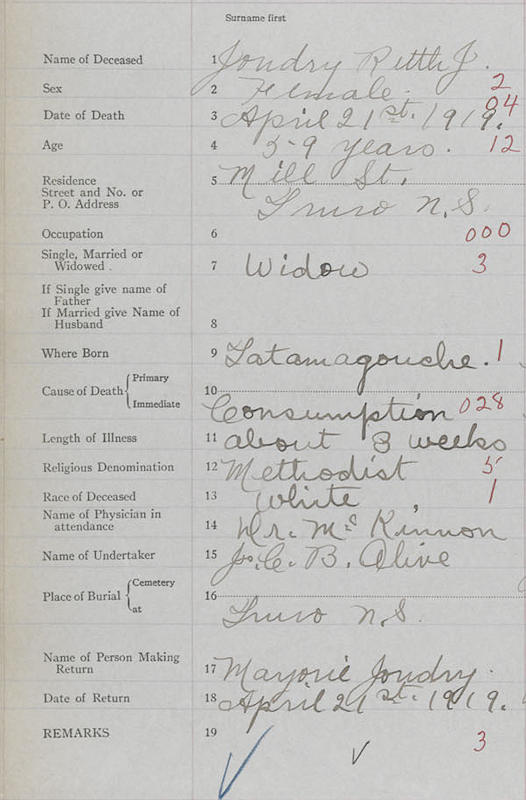 Surname first
Name of Deceased 1 Joudry Ruth J.
Sex 2 Female. 2
Date of Death 3 April 21st. 1919. 04
Age 4 59 years. 12
Residence 5 Mill St.
Street and No. or
P. O. Address Truro N.S.
Occupation 6 000
Single, Married or
Widowed . 7 Widow 3
If Single give name of
Father
If Married give Name of
Husband 8
Where Born 9 Tatamagouche. 1
Cause of Death { Primary
10
Immediate Consumption 028
Length of Illness 11 about 3 weeks
Religious Denomination 12 Methodist 5
Race of Deceased 13 White 1
Name of Physician in
attendance 14 Dr. Mc Kinnon
Name of Undertaker 15 J. C. B. Olive
Place of Burial { Cemetery
16
at Truro N.S.
Name of Person Making
Return 17 Marjorie Joudry.
Date of Return 18 April 21st. 1919.
REMARKS 19 3